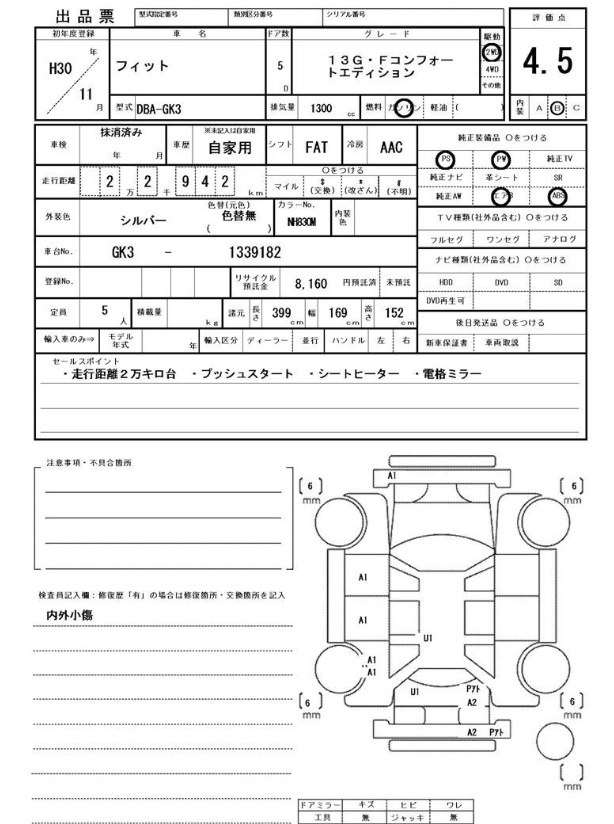 出品票
型式指定番号 類別区分番号 シリアル番号
初年度登録 車名 ドア数 グレード 駆動 評価点
H30 年 11 月
フィット
5 D
13G・Fコンフォー
トエディション
2WD
4WD
その他
4.5
型式 DBA-GK3 排気量 1300 cc 燃料 ガソリン 軽油 ( )
内装 A B C
車検 抹消済み 年 月 車歴 ※未記入は自家用 自家用 シフト FAT 冷房 AAC
純正装備品 Oをつける
PS PW 純正TV
純正ナビ 革シート SR
純正AW エアB ABS
走行距離 2 万 2 千 9 4 2 km
Oをつける
マイル $(交換) *(改ざん) #(不明)
外装色 シルバー 色替(元色) 色替無 ( ) カラーNo. NH830M 内装色
TV種類(社外品含む) Oをつける
フルセグ ワンセグ アナログ
車台No. GK3 - 1339182
ナビ種類(社外品含む) Oをつける
HDD DVD SD
DVD再生可
登録No. リサイクル預託金 8,160 円預託済 未預託
定員 5 人 積載量 kg 諸元 長さ 399 cm 幅 169 cm 高さ 152 cm
後日発送品 Oをつける
新車保証書 車両取説
輸入車のみ⇒ モデル年式 年 輸入区分 ディーラー 並行 ハンドル 左 右
セールスポイント
・走行距離2万キロ台 ・プッシュスタート ・シートヒーター ・電格ミラー
注意事項・不具合箇所
検査員記入欄：修復歴「有」の場合は修復箇所・交換箇所を記入
内外小傷
A1
6 mm
6 mm
A1
A1
U1
A1
A1
U1
Pアト
A2
6 mm
6 mm
A2 Pアト
mm
ドアミラー キズ ヒビ ワレ
工具 無 ジャッキ 無